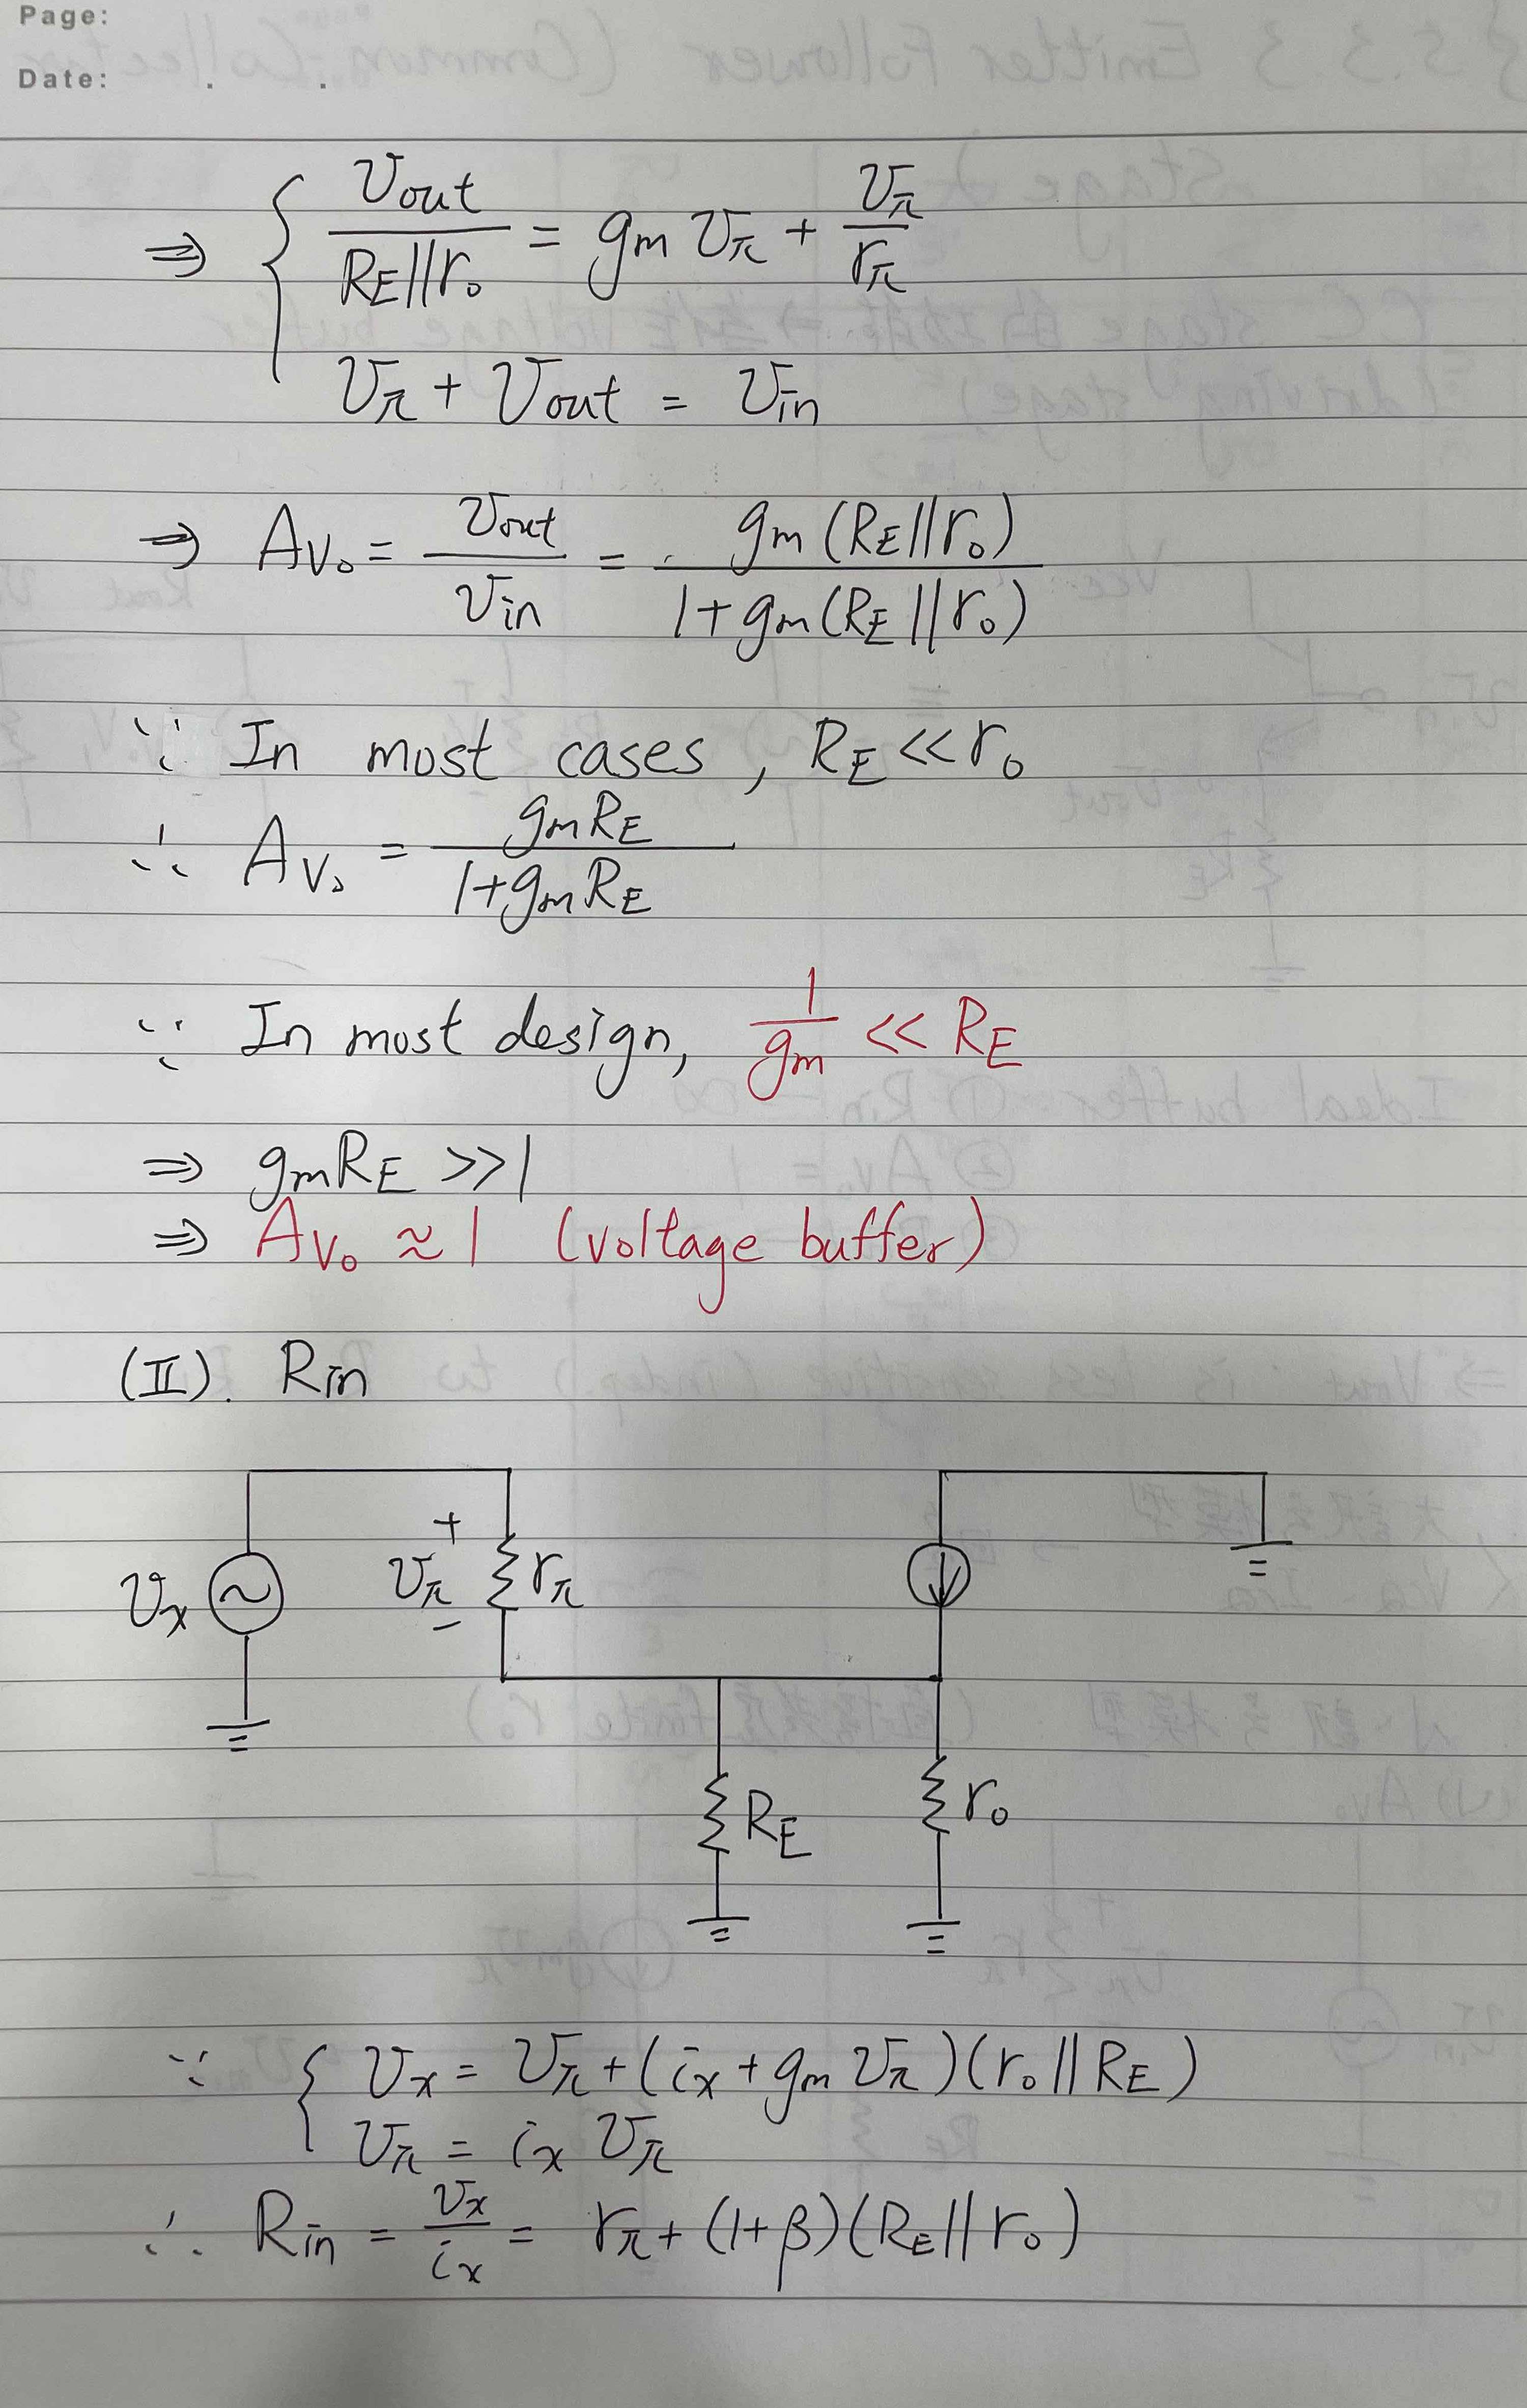 Page:
Date: . .
⇒ { vout / RE||ro = gm vπ + vπ / rπ
vπ + vout = vin
⇒ Avo = vout / vin = gm (RE||ro) / 1+gm(RE||ro)
∵ In most cases, RE << ro
∴ Avo = gmRE / 1+gmRE
∵ In most design, 1/gm << RE
⇒ gmRE >> 1
⇒ Avo ≈ 1 (voltage buffer)
(II). Rin
+
vx vπ rπ
−
RE ro
∵ { vx = vπ + (ix + gm vπ)(ro || RE)
vπ = ix vπ
∴ Rin = vx / ix = rπ + (1+β)(RE||ro)